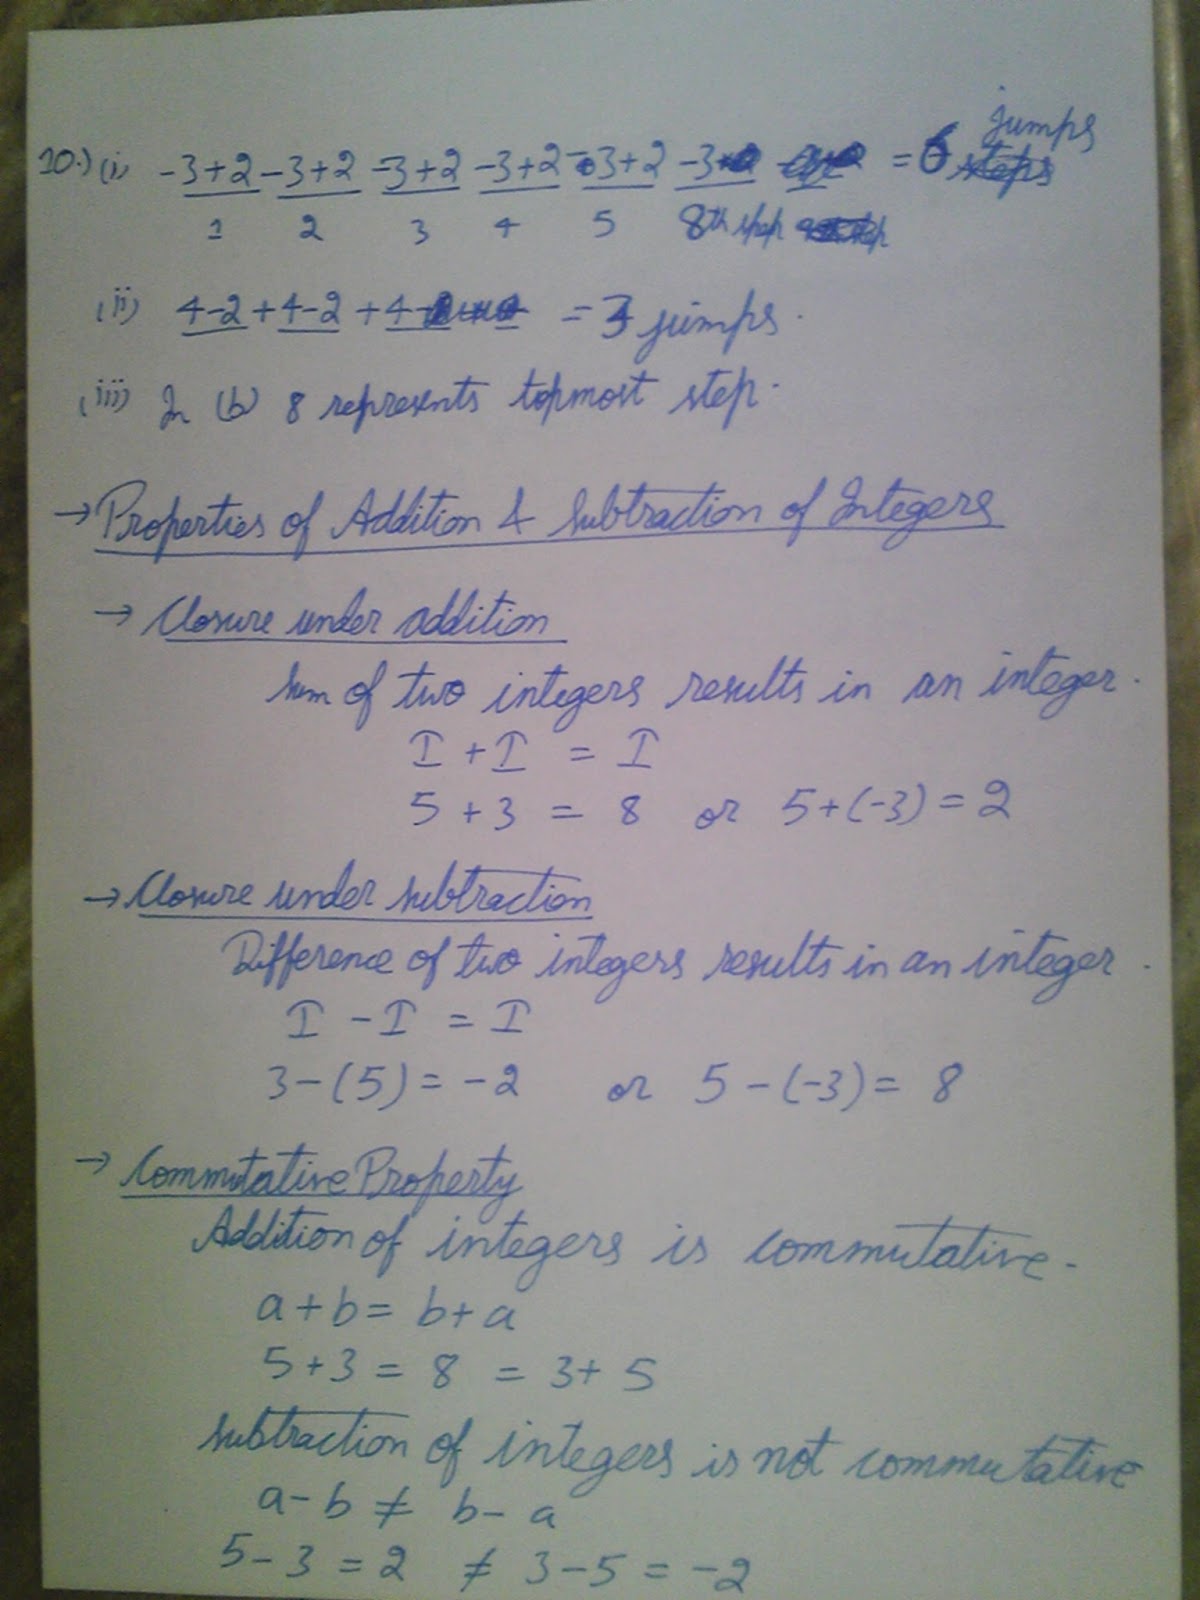 10.) (i) -3+2 -3+2 -3+2 -3+2 -3+2 -3 = 6 jumps
1 2 3 4 5 8th step
(ii) 4-2 +4-2 +4 = 3 jumps.
(iii) In (b) 8 represnts topmost step.
→ Properties of Addition & Subtraction of Integers
→ Closure under addition
Sum of two integers results in an integer.
I + I = I
5 + 3 = 8 or 5+(-3) = 2
→ Closure under subtraction
Difference of two integers results in an integer.
I - I = I
3-(5) = -2 or 5-(-3) = 8
→ Commutative Property
Addition of integers is commutative.
a+b = b+a
5+3 = 8 = 3+5
Subtraction of integers is not commutative
a-b ≠ b-a
5-3 = 2 ≠ 3-5 = -2